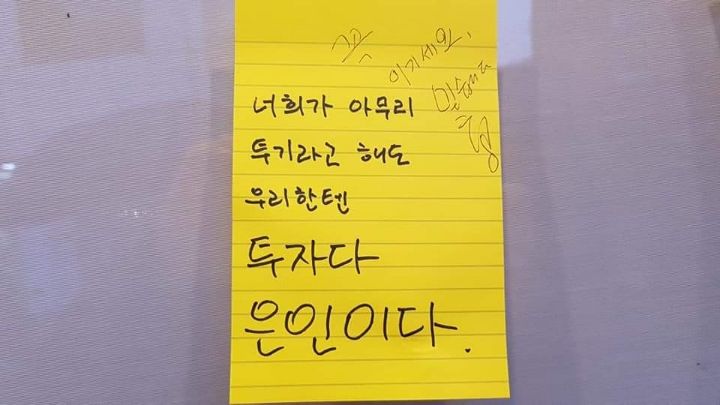 꼭
이기세요,
너희가 아무리
투기라고 해도
우리한텐
투자다
은인이다.